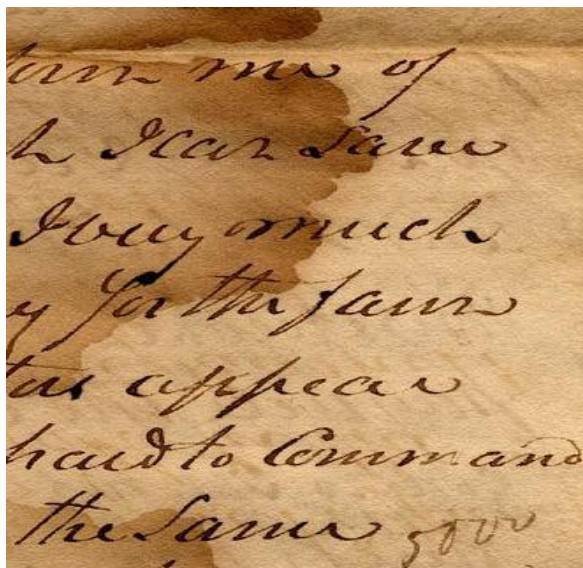 me of
h I can Save
I buy much
y for the farm
appear
hard to Command
the Same 5000